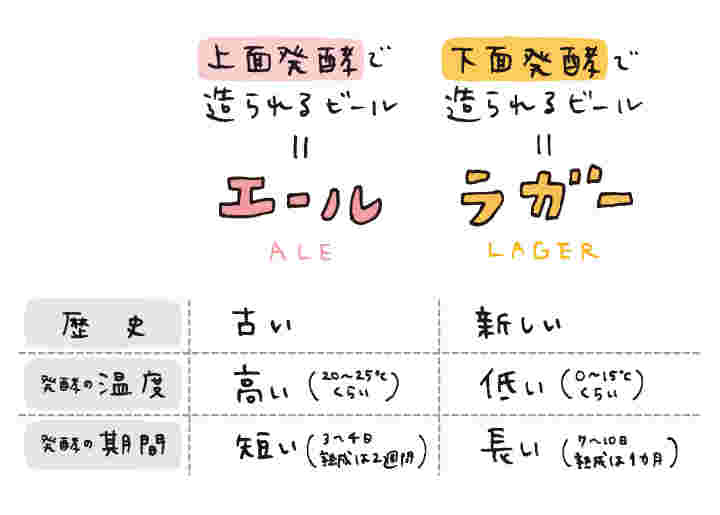 上面発酵で
造られるビール
=
エール
ALE
下面発酵で
造られるビール
=
ラガー
LAGER
歴史 古い 新しい
発酵の温度 高い (20〜25℃ くらい) 低い (0〜15℃ くらい)
発酵の期間 短い (3〜4日 熟成は2週間) 長い (7〜10日 熟成は1カ月)